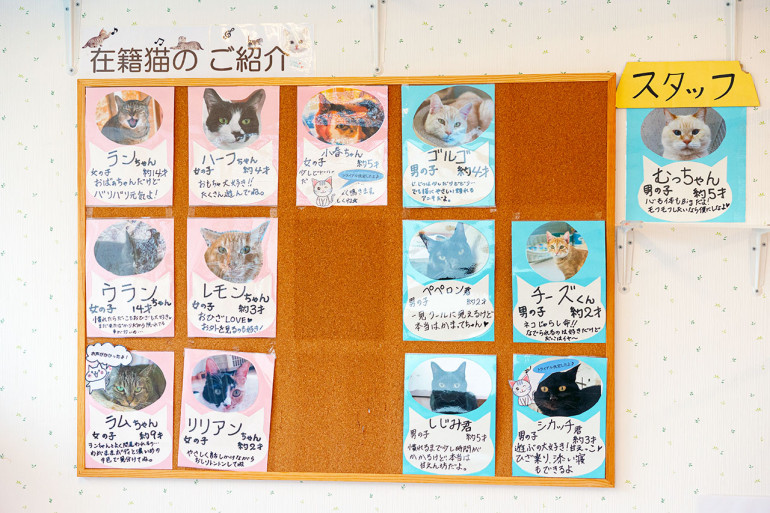 在籍猫の ご紹介
スタッフ
ランちゃん
女の子 約14才
おばあちゃんだけど
バリバリ元気よ!
ハーフちゃん
女の子 約4才
おもちゃ大好き!!
たくさん遊んでね。
小春ちゃん
女の子 約5才
ゴルゴ
男の子 約4才
むっちゃん
男の子 約5才
ウランちゃん
女の子 14才
レモンちゃん
女の子 約3才
おひざLOVE
お外を見るのも好き!
ペペロン君
男の子 約2才
一見クールに見えるけど
本当はかまってちゃん♥
チーズくん
男の子 約2才
ネコじゃらし命!!
なでられるのは好きだけど
だっこはイヤ〜
ラムちゃん
女の子 約9才
リリアンちゃん
女の子 約2才
やさしく話しかけながら
おしりトントンしてね
しじみ君
男の子 約5才
慣れるまで少し時間が
かかるけど、本当は
甘えん坊だよ。
シカッチ君
男の子 約3才
遊ぶの大好き!甘えっこ♡
ひざ乗り、添い寝
もできるよ